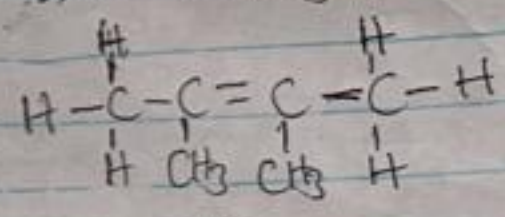 H H
H-C-C=C-C-H
H CH3 CH3 H